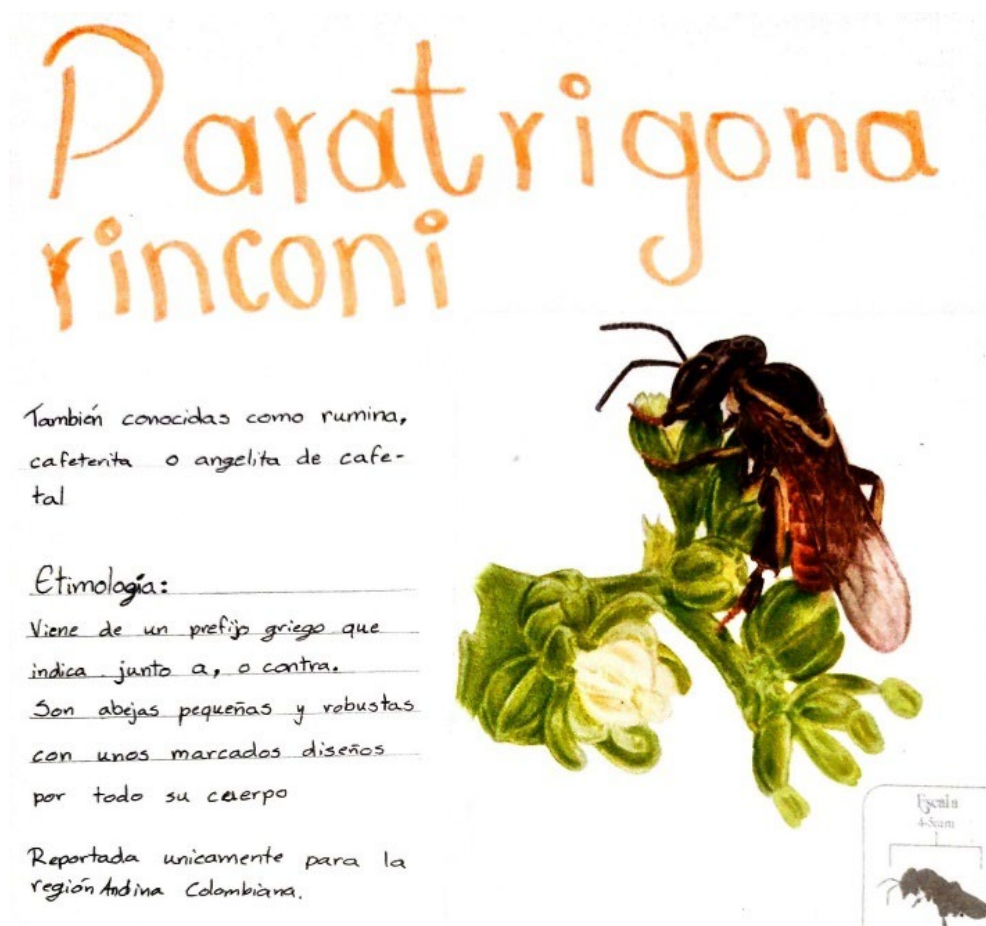 Paratrigona
rinconi
También conocidas como rumina,
cafeterita o angelita de cafe-
tal
Etimología:
Viene de un prefijo griego que
indica junto a, o contra.
Son abejas pequeñas y robustas
con unos marcados diseños
por todo su cuerpo
Reportada unicamente para la
región Andina Colombiana.
Escala